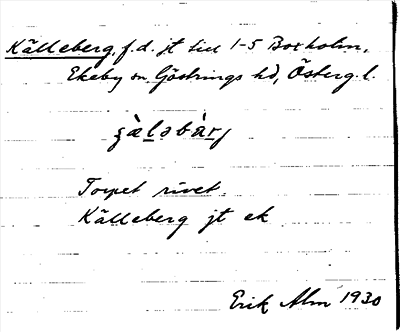 Källeberg, f.d. jt till 1-5 Boxholm,
Ekeby sn, Göstrings hd, Österg. l.
Torpet rivet.
Källeberg jt ek
Erik Alm 1930